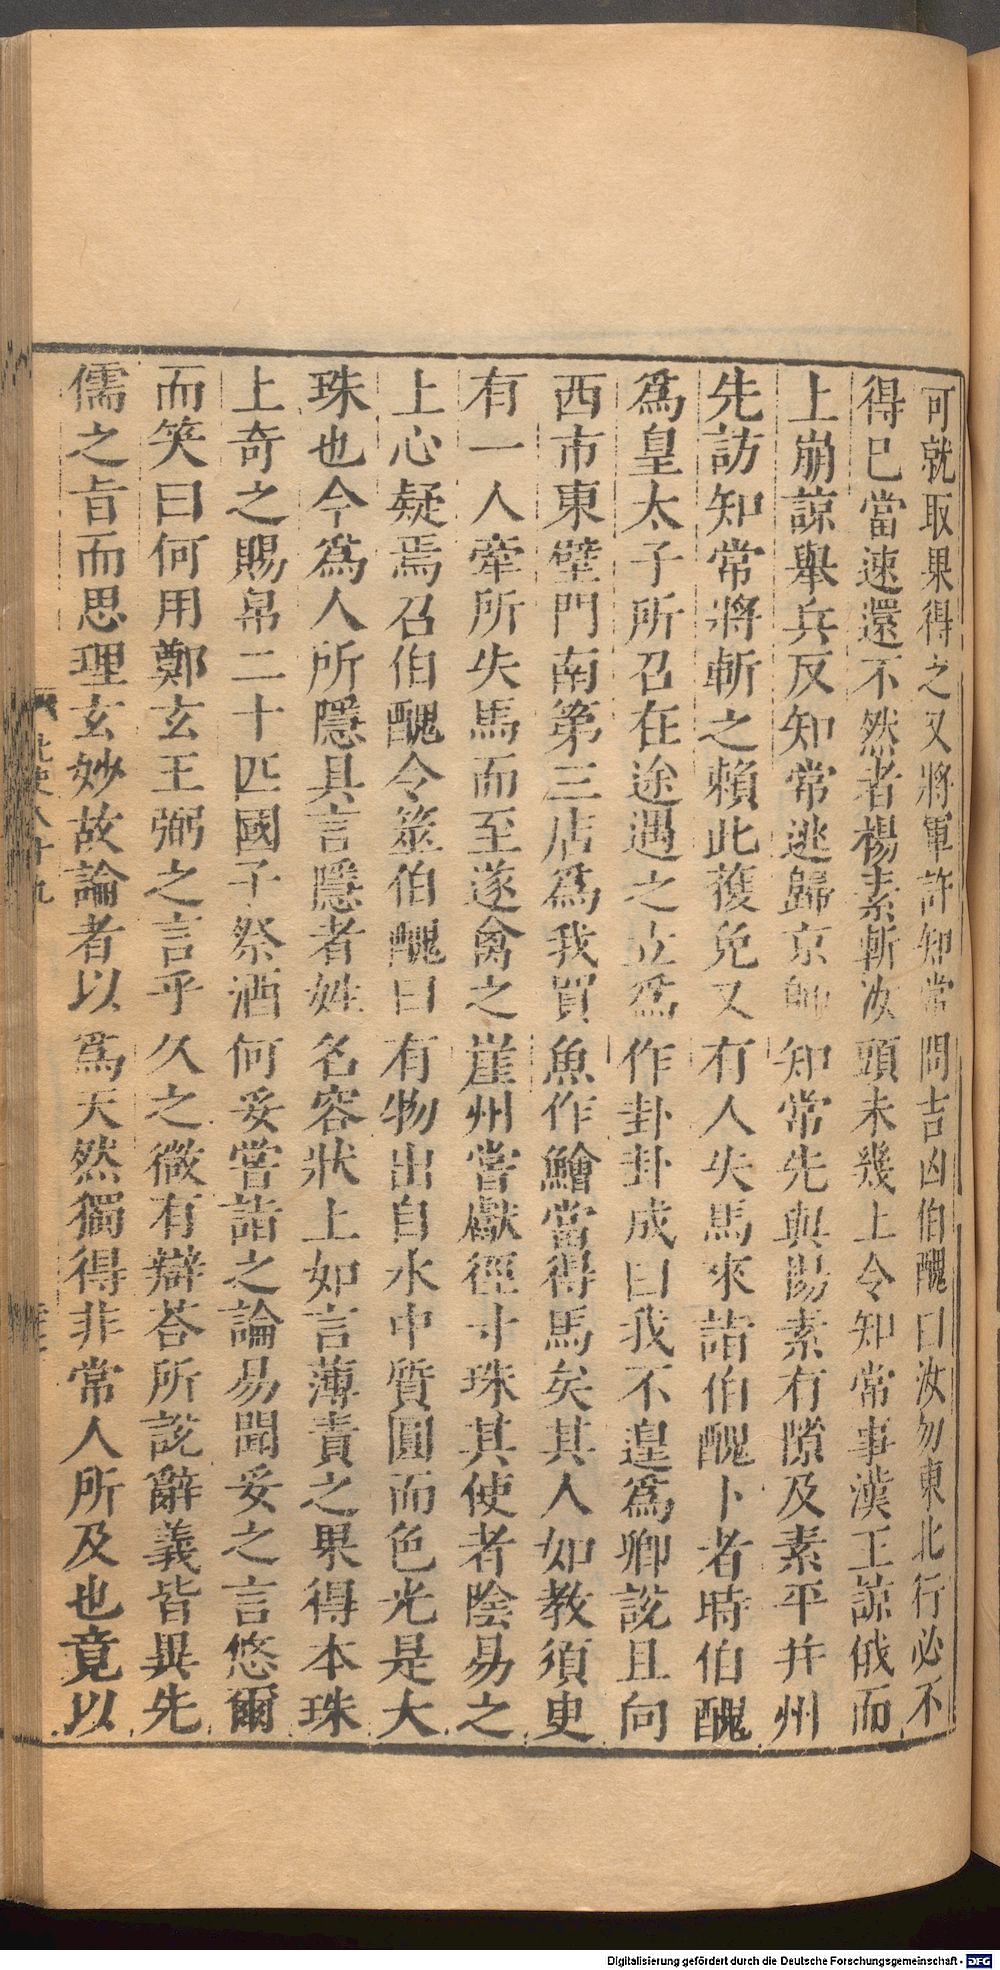 可就取果得之又將軍許知常問吉凶伯醜曰汝勿東北行必不
得已當速還不然者楊素斬汝頭未幾上令知常事漢王諒俄而
上崩諒舉兵反知常逃歸京師知常先與陽素有隙及素平并州
先訪知常將斬之賴此獲免又有人失馬來詣伯醜卜者時伯醜
爲皇太子所召在途遇之立爲作卦卦成曰我不遑爲卿說且向
西市東壁門南第三店爲我買魚作鱠當得馬矣其人如教須臾
有一人牽所失馬而至遂禽之崖州嘗獻徑寸珠其使者陰易之
上心疑焉召伯醜令筮伯醜曰有物出自水中質圓而色光是大
珠也今爲人所隱具言隱者姓名容狀上如言薄責之果得本珠
上奇之賜帛二十匹國子祭酒何妥嘗詣之論易聞妥之言悠爾
而笑曰何用鄭玄王弼之言乎久之微有辯荅所說辭義皆異先
儒之旨而思理玄妙故論者以爲天然獨得非常人所及也竟以
Digitalisierung gefördert durch die Deutsche Forschungsgemeinschaft - DFG